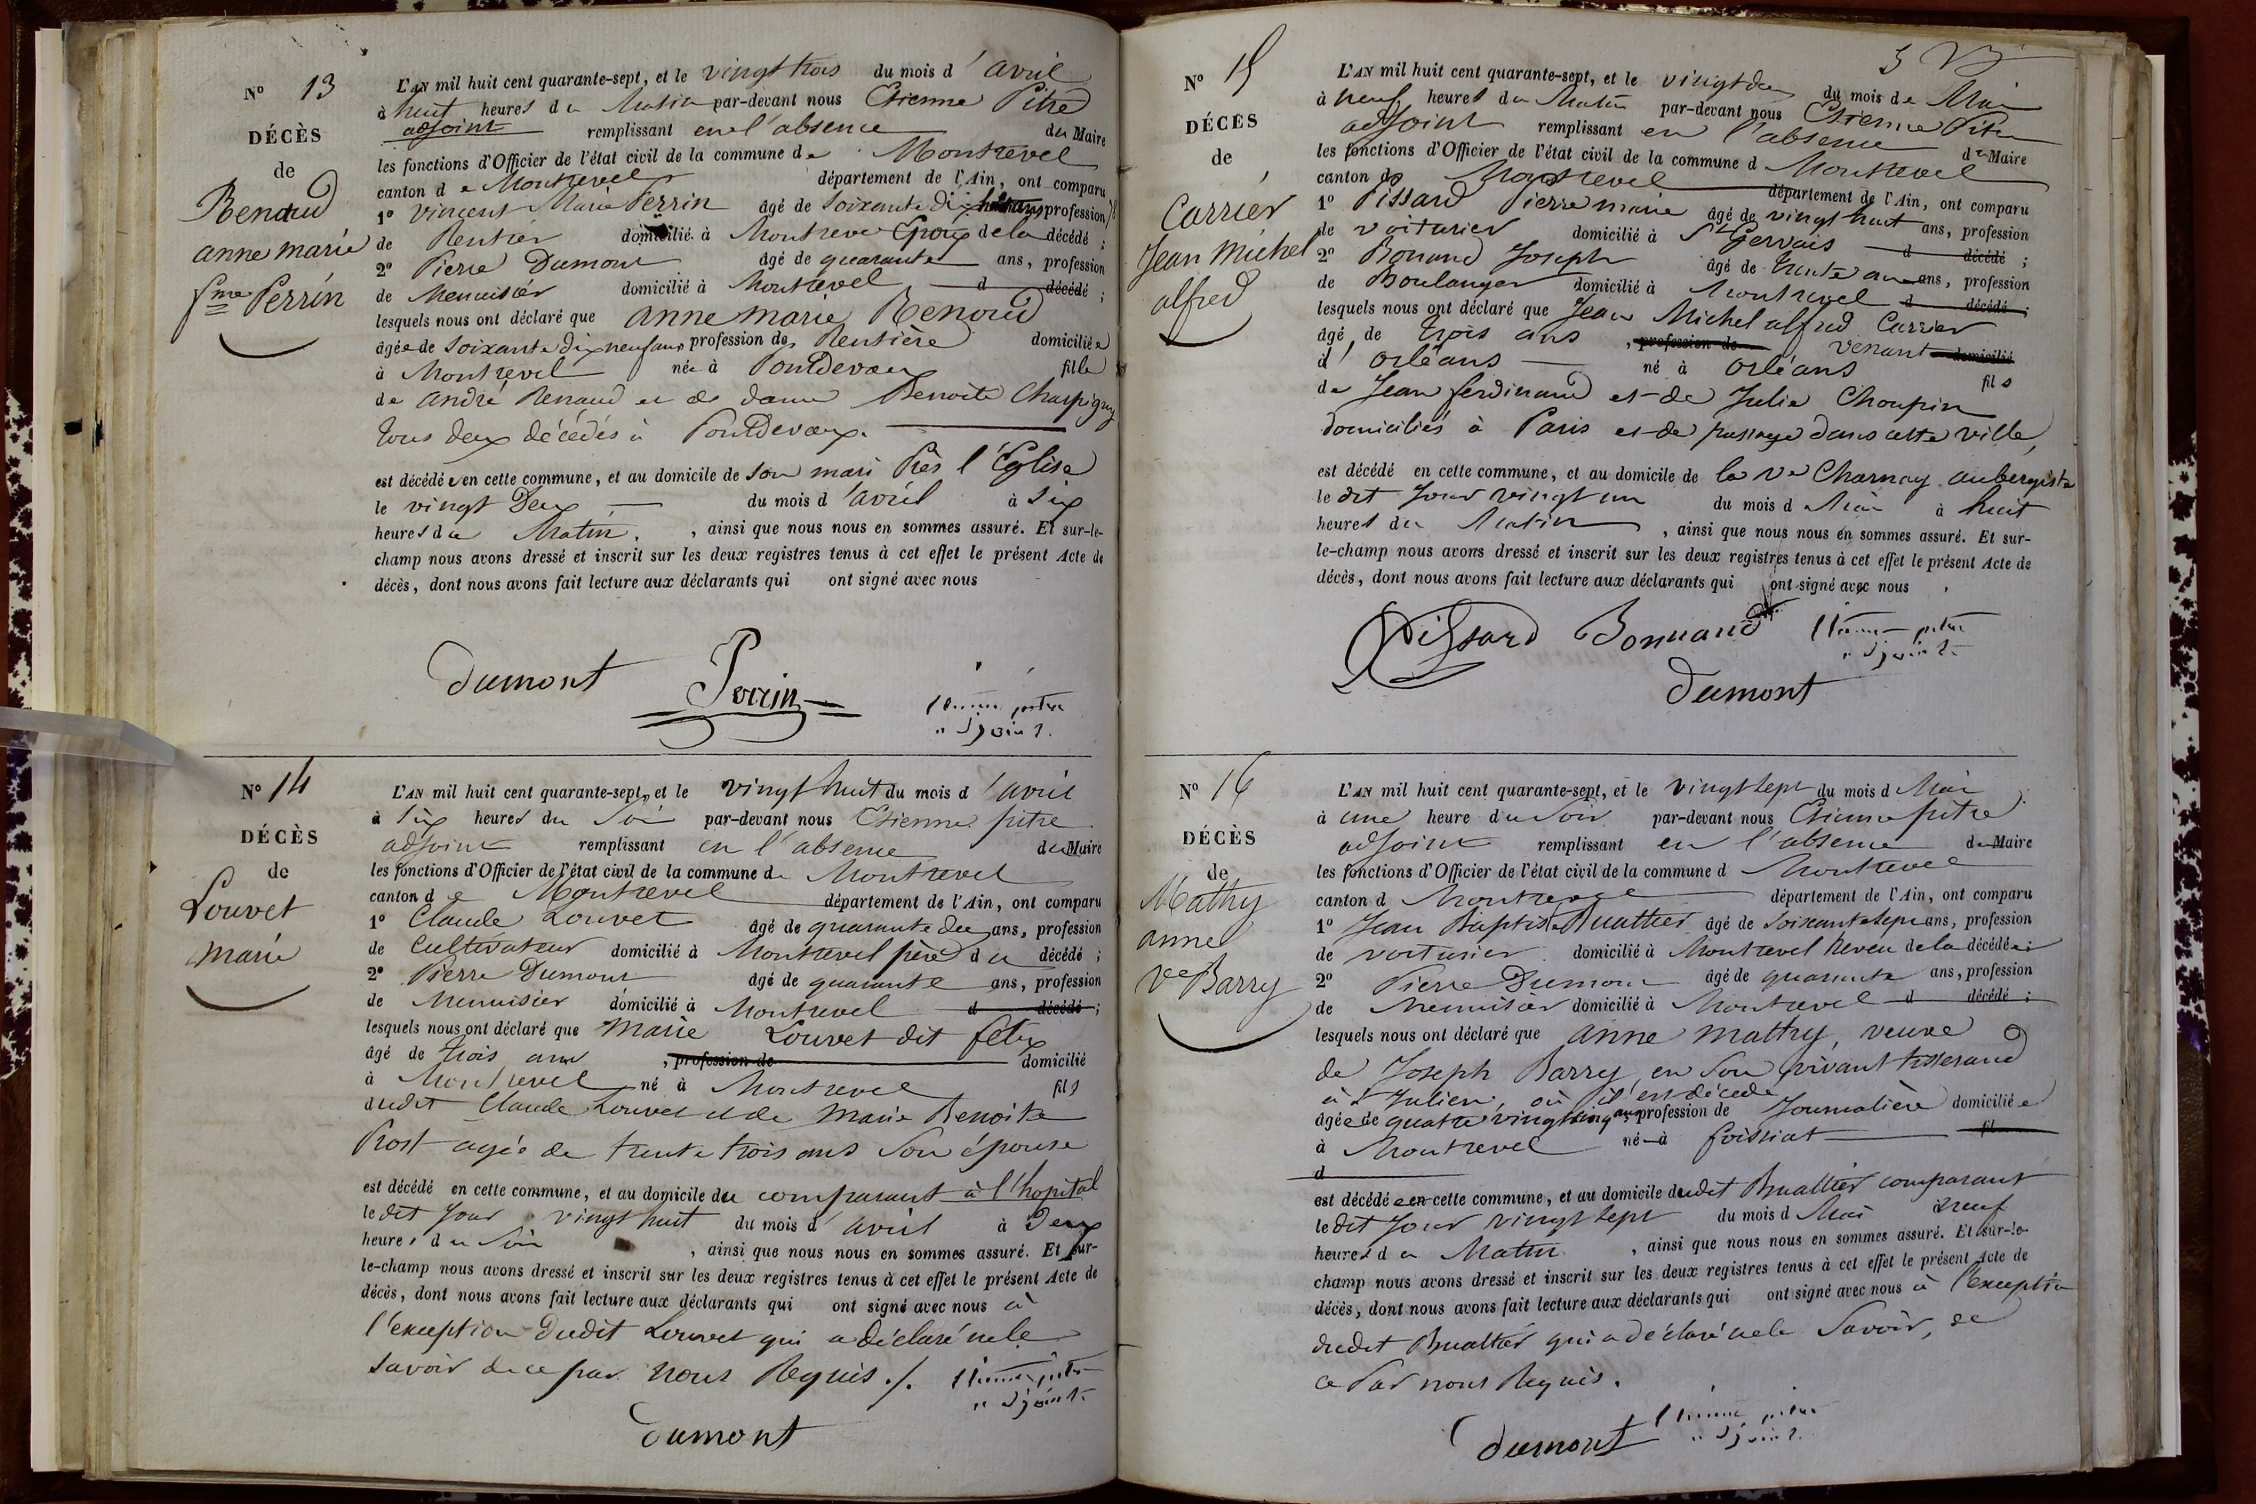 N° 13
DÉCÈS
de
Renaud
anne marie
fme Perrin
L'AN mil huit cent quarante-sept, et le vingt trois du mois d'avril
à huit heures du Matin par-devant nous Etienne Pitre
adjoint remplissant en l'absence du Maire
les fonctions d'Officier de l'état civil de la commune de Montrevel
canton de Montrevel département de l'Ain, ont comparu
1° Vincent Marie Perrin âgé de soixante dix profession
de Rentier domicilié à Montrevel Epoux de la décédé ;
2° Pierre Dumont âgé de quarante ans, profession
de Menuisier domicilié à Montrevel d décédé ;
lesquels nous ont déclaré que anne marie Renoud
âgée de soixante dix neuf ans profession de Rentière domiciliée
à Montrevel née à Pontdevaux fille
de andré Renaud et de dame Benoite Charpigny
tous deux décédés à Pontdevaux.
est décédée en cette commune, et au domicile de son mari Près l'Eglise
le vingt Deux du mois d'avril à six
heures du Matin. , ainsi que nous nous en sommes assuré. Et sur-le-
champ nous avons dressé et inscrit sur les deux registres tenus à cet effet le présent Acte de
décès, dont nous avons fait lecture aux déclarants qui ont signé avec nous
Dumont Perrin Etienne pitre
adjoint.
N° 14
DÉCÈS
de
Louvet
marie
L'AN mil huit cent quarante-sept, et le vingt huit du mois d'avril
à six heures du Soir par-devant nous Etienne pitre
adjoint remplissant en l'absence du Maire
les fonctions d'Officier de l'état civil de la commune de Montrevel
canton de Montrevel département de l'Ain, ont comparu
1° Claude Louvet âgé de quarante deux ans, profession
de Cultivateur domicilié à Montrevel père du décédé ;
2° Pierre Dumont âgé de quarante ans, profession
de Menuisier domicilié à Montrevel d décédé ;
lesquels nous ont déclaré que Marie Louvet dit félix
âgé de trois ans , profession de domicilié
à Montrevel né à Montrevel fils
dudit Claude Louvet et de Marie Benoite
Prost agée de trente trois ans son épouse
est décédé en cette commune, et au domicile du comparant à l'hopital
le dit jour vingt huit du mois d'avril à Deux
heures du Soir , ainsi que nous nous en sommes assuré. Et sur-
le-champ nous avons dressé et inscrit sur les deux registres tenus à cet effet le présent Acte de
décès, dont nous avons fait lecture aux déclarants qui ont signé avec nous à
l'exception dudit Louvet qui a déclaré ne le
savoir de ce par nous Requis ./. Etienne pitre
adjoint.
Dumont
N° 15
DÉCÈS
de
Carrier
Jean Michel
alfred
L'AN mil huit cent quarante-sept, et le vingt deux du mois de Mai
à neuf heures du Matin par-devant nous Etienne Pitre
adjoint remplissant en l'absence du Maire
les fonctions d'Officier de l'état civil de la commune d Montrevel
canton de Montrevel département de l'Ain, ont comparu
1° Pissard Pierre marie âgé de vingt huit ans, profession
de voiturier domicilié à St Gervais d décédé ;
2° Bonand Joseph âgé de trente ans, profession
de Boulanger domicilié à Montrevel d décédé ;
lesquels nous ont déclaré que Jean Michel alfred Carrier
âgé de trois ans , profession de venant domicilié
d'Orléans né à Orléans fils
de Jean ferdinand et de Julie Choupin
domiciliés à Paris et de passage dans cette ville,
est décédé en cette commune, et au domicile de la Ve Charnay aubergiste
le dit jour vingt un du mois d Mai à huit
heures du Matin , ainsi que nous nous en sommes assuré. Et sur-
le-champ nous avons dressé et inscrit sur les deux registres tenus à cet effet le présent Acte de
décès, dont nous avons fait lecture aux déclarants qui ont signé avec nous
Pissard Bonnand Etienne pitre
adjoint.
Dumont
N° 16
DÉCÈS
de
Mathy
anne
Ve Barry
L'AN mil huit cent quarante-sept, et le vingt sept du mois d Mai
à une heure du Soir par-devant nous Etienne pitre
adjoint remplissant en l'absence du Maire
les fonctions d'Officier de l'état civil de la commune d Montrevel
canton d Montrevel département de l'Ain, ont comparu
1° Jean Baptiste Buathier âgé de soixante sept ans, profession
de voiturier domicilié à Montrevel neveu de la décédée ;
2° Pierre Dumont âgé de quarante ans, profession
de Menuisier domicilié à Montrevel d décédé ;
lesquels nous ont déclaré que anne mathy, veuve
de Joseph Barry en son vivant tisserand
à St Julien, où il est décédé
âgée de quatre vingt cinq ans profession de Journalière domiciliée
à Montrevel né à foissiat fil
d
est décédée en cette commune, et au domicile dudit Buathier comparant
le dit jour vingt sept du mois d Mai à neuf
heures du Matin , ainsi que nous nous en sommes assuré. Et sur-le-
champ nous avons dressé et inscrit sur les deux registres tenus à cet effet le présent Acte de
décès, dont nous avons fait lecture aux déclarants qui ont signé avec nous à l'exception
dudit Buathier qui a déclaré ne le savoir, de
ce Par nous Requis.
Dumont Etienne pitre
adjoint.